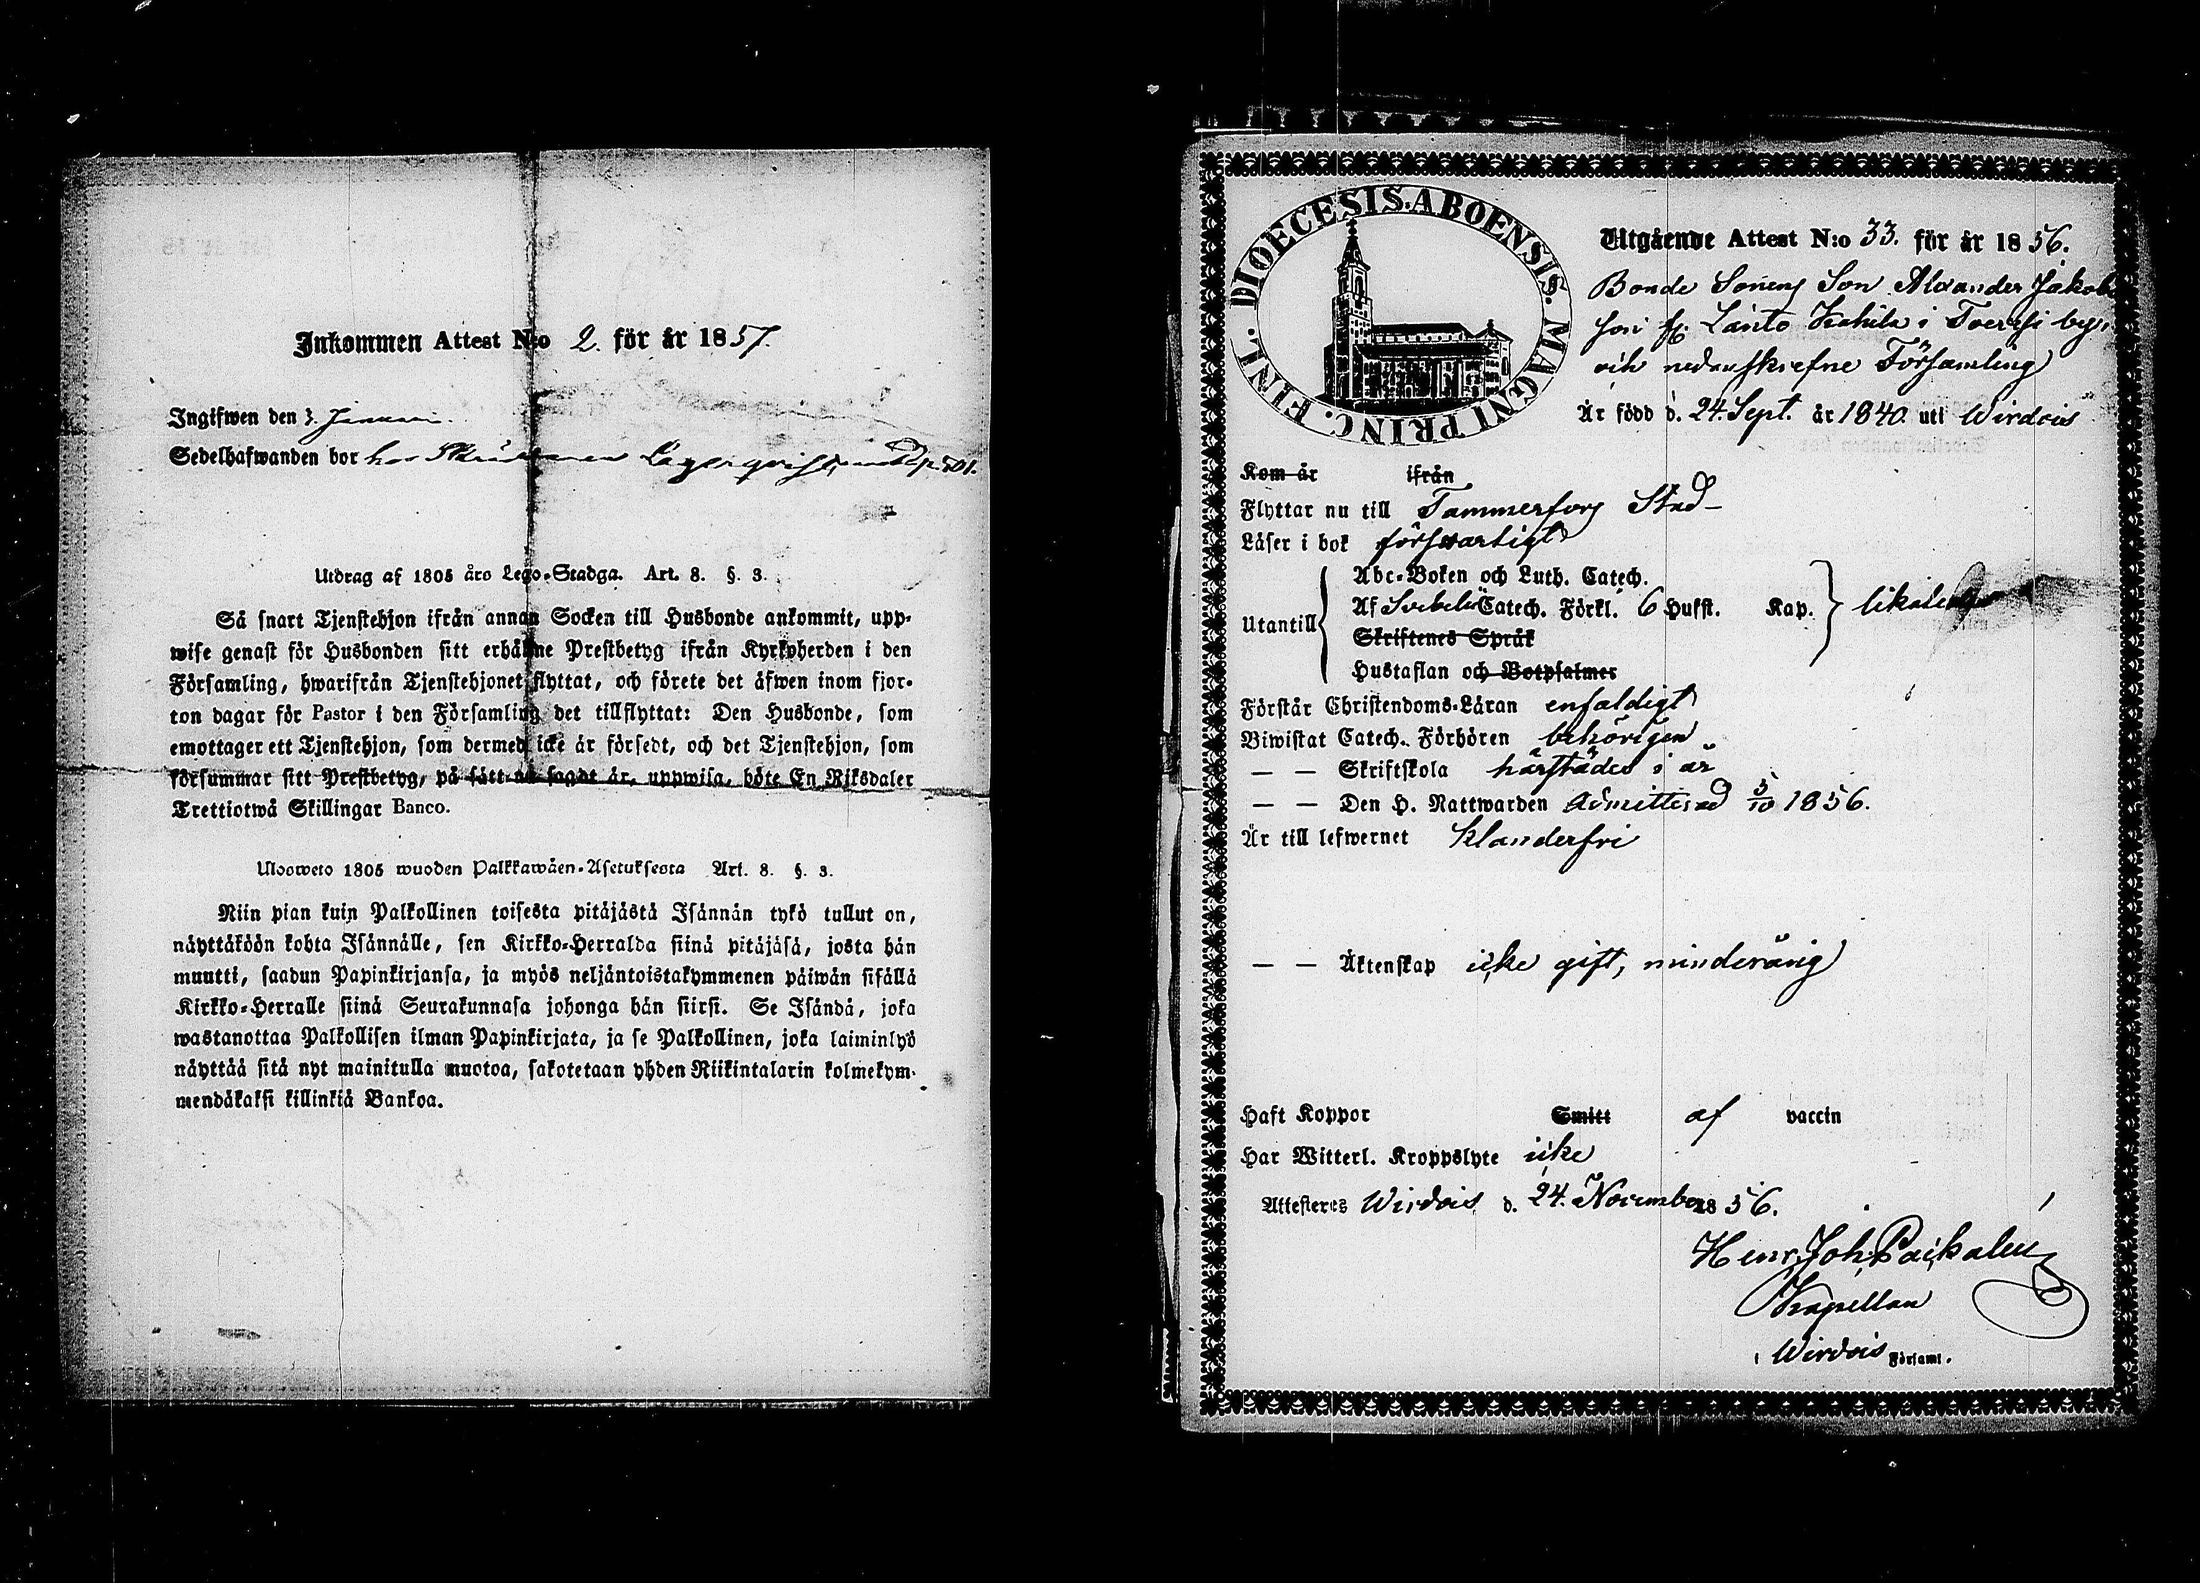 Inkommen Attest N:o 2. för år 1857.
Ingifwen den 3. Januari.
Sedelhafwanden bor hos Lagerqvist
Utdrag af 1805 års Lego-Stadga. Art. 8. §. 3.
Så snart Tjenstehjon ifrån annan Socken till Husbonde ankommit, upp-
wise genast för Husbonden sitt erhållne Prestbetyg ifrån Kyrkoherden i den
Församling, hwarifrån Tjenstehjonet flyttat, och förete det äfwen inom fjor-
ton dagar för Pastor i den Församling det tillflyttat: Den Husbonde, som
emottager ett Tjenstehjon, som dermed icke är försedt, och det Tjenstehjon, som
försummar sitt Prestbetyg, på sätt nu sagdt är, uppwisa, böte En Riksdaler
Trettiotwå Skillingar Banco.
Ulosweto 1805 wuoden Palkkawäen-Asetuksesta Art. 8. §. 3.
Niin pian kuin Palkollinen toisesta pitäjästä Isännän tykö tullut on,
näyttäköön kohta Isännälle, sen Kirkko-Herralda siinä pitäjäsä, josta hän
muutti, saadun Papinkirjansa, ja myös neljäntoistakymmenen päiwän sisällä
Kirkko-Herralle siinä Seurakunnasa johonga hän siirsi. Se Isändä, joka
wastanottaa Palkollisen ilman Papinkirjata, ja se Palkollinen, joka laiminlyö
näyttää sitä nyt mainitulla muotoa, sakotetaan yhden Riikintalarin kolmekym-
mendäkaksi killinkiä Bankoa.
DIOECESIS. ABOENSIS. MAGNI PRINC. FINL.
Utgående Attest N:o 33. för år 1856.
Bonde Sonens Son Alexander Jakobs
son fr. Lanto i by,
och nedanskrefne Församling
Är född d. 24. Sept. år 1840. uti Wirdois
Kom år ifrån
Flyttar nu till Tammerfors Stad
Läser i bok försvarligt
Abc-Boken och Luth. Catech.
Utantill Af Svebelii Catech. Förkl. 6 Hufst. Kap. likaledes
Skriftenes Språk
Hustaflan och Botpsalmer
Förstår Christendoms-Läran enfaldigt
Biwistat Catech. Förhören behörigen
— — Skriftskola härstädes i år
— — Den H. Nattwarden Admitterad 5/10 1856.
Är till lefwernet klanderfri
— — Äktenskap icke gift, minderårig
Haft Koppor Smitt af vaccin
Har Witterl. Kroppslyte icke
Attesteres Wirdois d. 24. November 1856.
Henr. Joh. Paikalén
Kapellan
i Wirdois Församl.